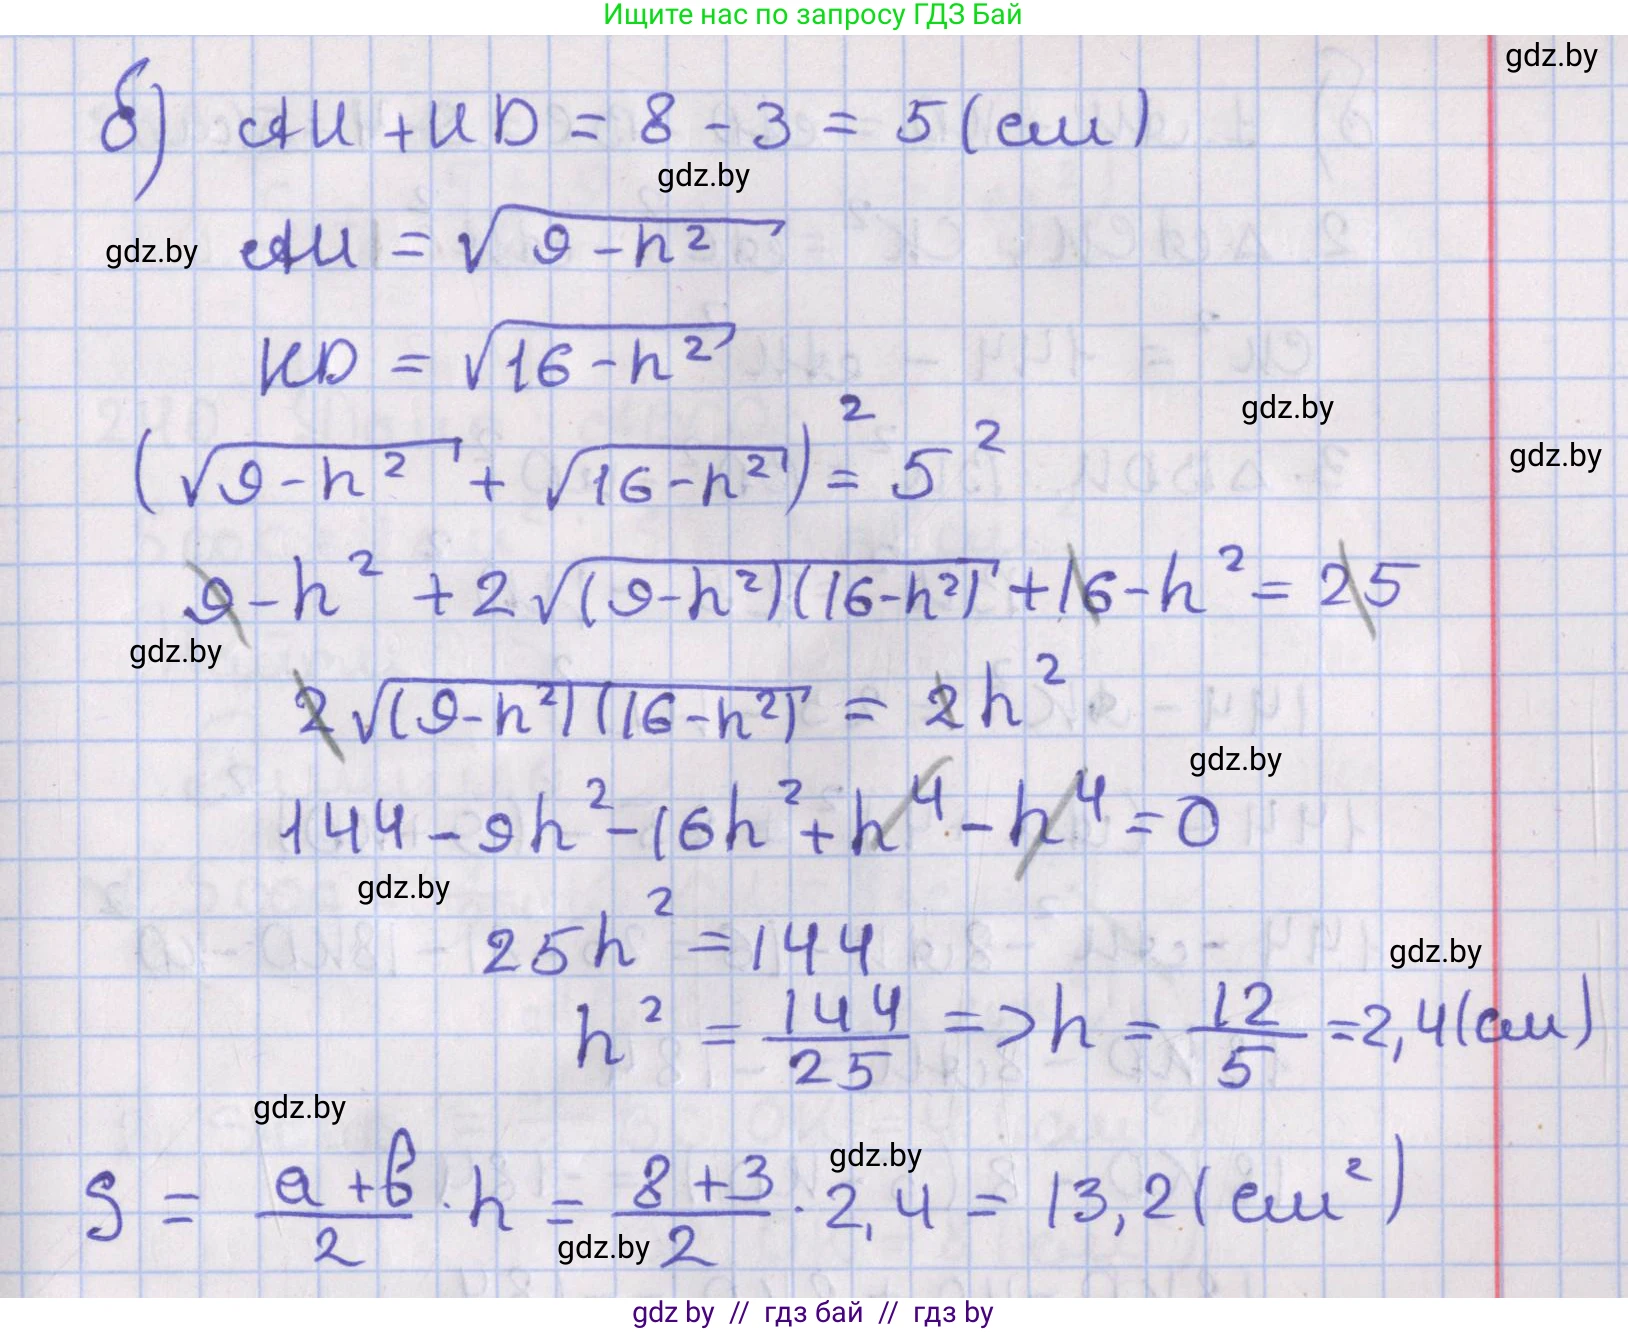 Ищите нас по запросу ГДЗ Бай
gdz.by
б) AH + HD = 8 - 3 = 5 (см)
gdz.by
gdz.by
AH = √(9 - h²)
KD = √(16 - h²)
gdz.by
(√(9 - h²) + √(16 - h²))² = 5²
gdz.by
9 - h² + 2√((9 - h²)(16 - h²)) + 16 - h² = 25
gdz.by
2√((9 - h²)(16 - h²)) = 2h²
gdz.by
144 - 9h² - 16h² + h⁴ - h⁴ = 0
gdz.by
25h² = 144
gdz.by
h² = 144/25 => h = 12/5 = 2,4 (см)
gdz.by
gdz.by
S = (a + b)/2 · h = (8 + 3)/2 · 2,4 = 13,2 (см²)
gdz.by
gdz by // гдз бай // гдз by